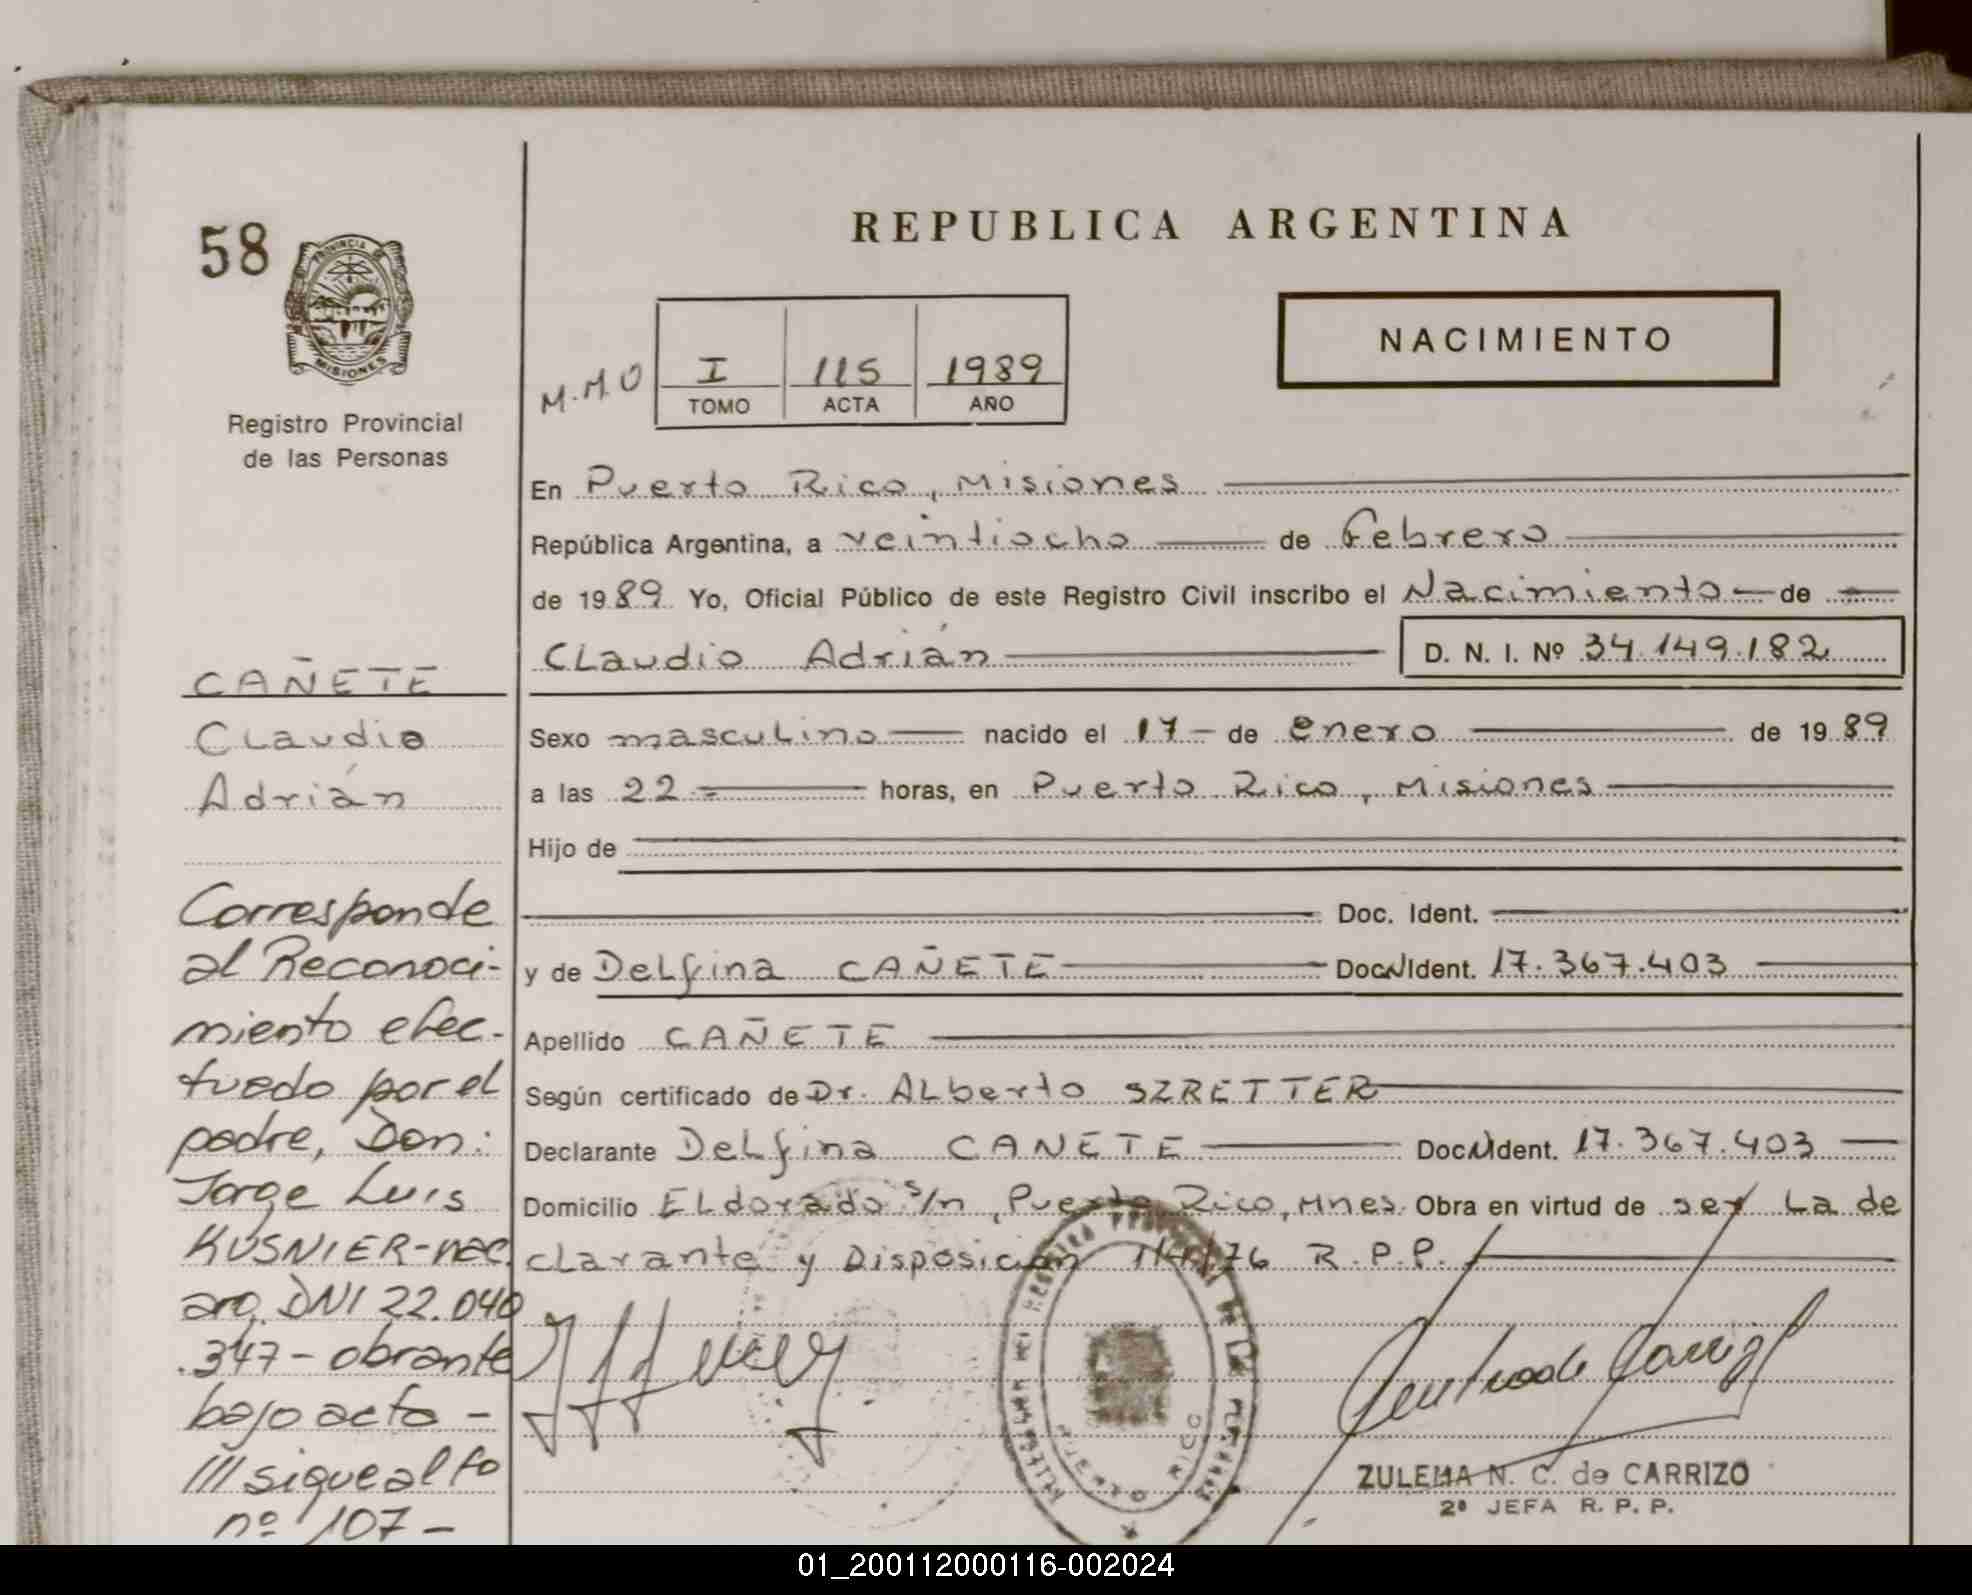 REPUBLICA ARGENTINA
58
PROVINCIA DE
MISIONES
Registro Provincial
de las Personas
NACIMIENTO
M.M.O
I 115 1989
TOMO ACTA AÑO
En Puerto Rico, Misiones
República Argentina, a veintiocho de Febrero
de 1989 Yo, Oficial Público de este Registro Civil inscribo el Nacimiento de
Claudio Adrián D. N. I. Nº 34.149.182
Sexo masculino nacido el 17 de enero de 1989
a las 22 horas, en Puerto Rico, Misiones
Hijo de
Doc. Ident.
y de Delfina CAÑETE Doc. Ident. 17.367.403
Apellido CAÑETE
Según certificado de Dr. Alberto SZRETTER
Declarante Delfina CAÑETE Doc. Ident. 17.367.403
Domicilio Eldorado s/n, Puerto Rico, Mnes. Obra en virtud de ser la de
clarante y Disposición /76 R.P.P.
CAÑETE
Claudio
Adrián
Corresponde
al Reconoci-
miento efec-
tuado por el
padre, Don:
Jorge Luis
KUSNIER-nac.
arg. DNI 22.040
.347 - obrante
bajo acta -
/// sigue al fo
nº 107 -
PUERTO RICO
ZULEMA N. C. de CARRIZO
2ª JEFA R. P. P.
01_200112000116-002024